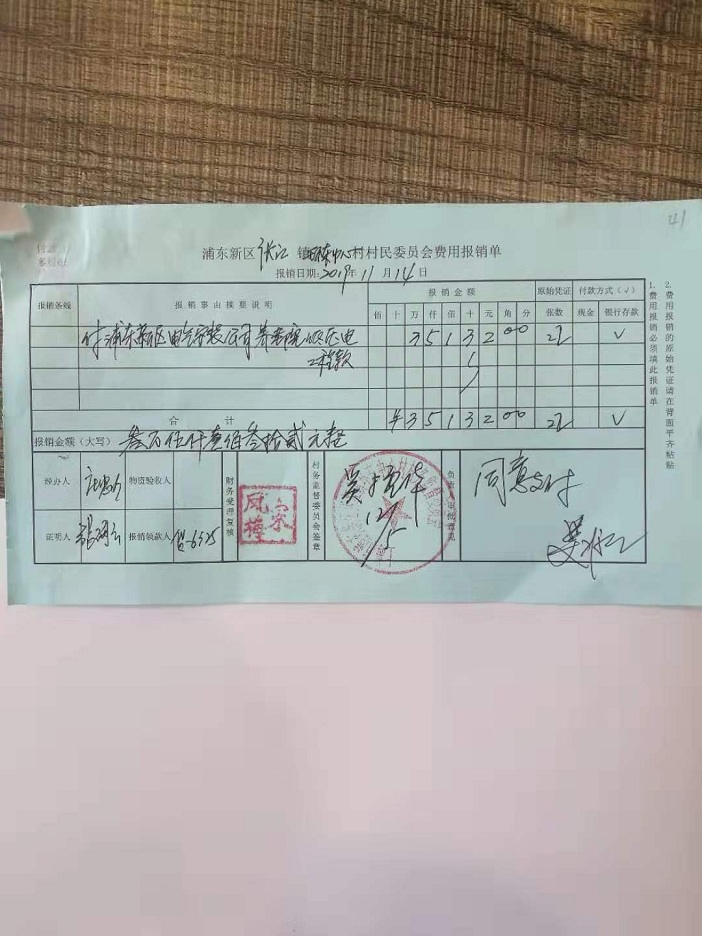 41
浦东新区 张江 镇 村村民委员会费用报销单
报销日期: 2019年 11 月 14 日
报销条线 报销事由摘要说明 报销金额 原始凭证 付款方式(√)
佰 十 万 仟 佰 十 元 角 分 张数 现金 银行存款
付浦东新区电气安装公司养老院 电 3 5 1 3 2 0 0 √
工程款
合计 ¥ 3 5 1 3 2 0 0 √
报销金额(大写) 叁万伍仟壹佰叁拾贰元整
经办人 物资验收人 财务受理复核 村务监督委员会签章 负责人审批意见 同意支付
凤梅 宗
12/5
证明人 报销领款人
1. 费用报销必须填此报销单
2. 费用报销的原始凭证请在背面平齐粘贴